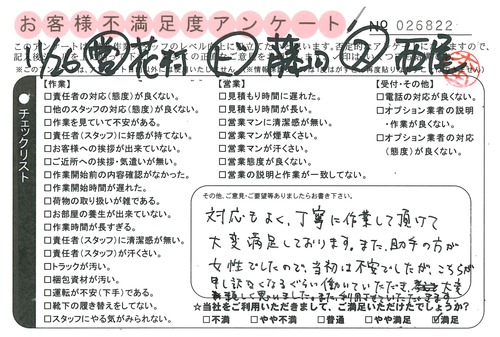 お客様不満足度アンケート
NO 026822
【作業】
□責任者の対応(態度)が良くない。
□他のスタッフの対応(態度)が良くない。
□作業を見ていて不安がある。
□責任者(スタッフ)に好感が持てない。
□お客様への挨拶が出来ていない。
□ご近所への挨拶・気遣いが無い。
□作業開始前の内容確認がなかった。
□作業開始時間が遅れた。
□荷物の取り扱いが雑である。
□お部屋の養生が出来ていない。
□作業時間が長すぎる。
□責任者(スタッフ)に清潔感が無い。
□責任者(スタッフ)が汗くさい。
□トラックが汚い。
□梱包資材が汚い。
□運転が不安(下手)である。
□靴下の履き替えをしてない。
□スタッフにやる気がみられない。
【営業】
□見積もり時間に遅れた。
□見積もり時間が長い。
□営業マンに清潔感が無い。
□営業マンが煙草くさい。
□営業マンが汗くさい。
□営業態度が良くない。
□営業の説明と作業が一致してない。
【受付・その他】
□電話の対応が良くない。
□オプション業者の説明
・作業が良くない。
□オプション業者の対応
(態度)が良くない。
チェックリスト
その他、ご意見・ご要望等ありましたらお書き下さい。
対応もよく、丁寧に作業して頂けて
大変満足しております。また、助手の方が
女性でしたので、当初は不安でしたが、こちらが
申し訳なくなるぐらい働いていただき、大変
☆当社をご利用いただきまして、ご満足いただけたでしょうか?
□不満 □やや不満 □普通 □やや満足 ☑満足